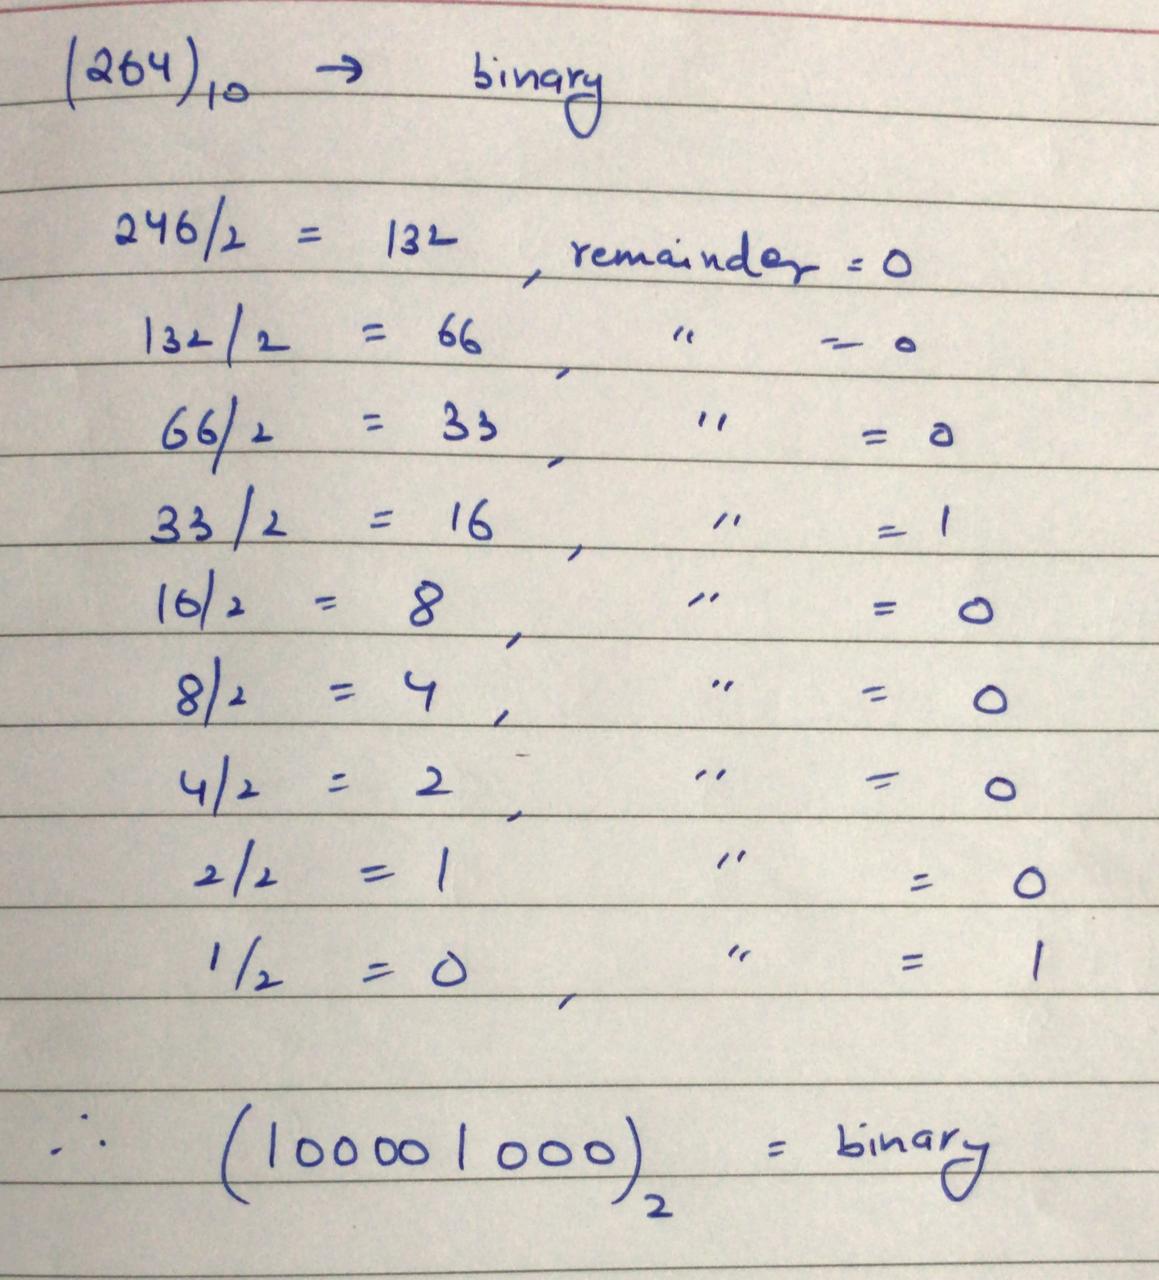 (264)₁₀ → binary
246/2 = 132 , remainder = 0
132/2 = 66 , " = 0
66/2 = 33 , " = 0
33/2 = 16 , " = 1
16/2 = 8 , " = 0
8/2 = 4 , " = 0
4/2 = 2 , " = 0
2/2 = 1 " = 0
1/2 = 0 , " = 1
∴ (100001000)₂ = binary